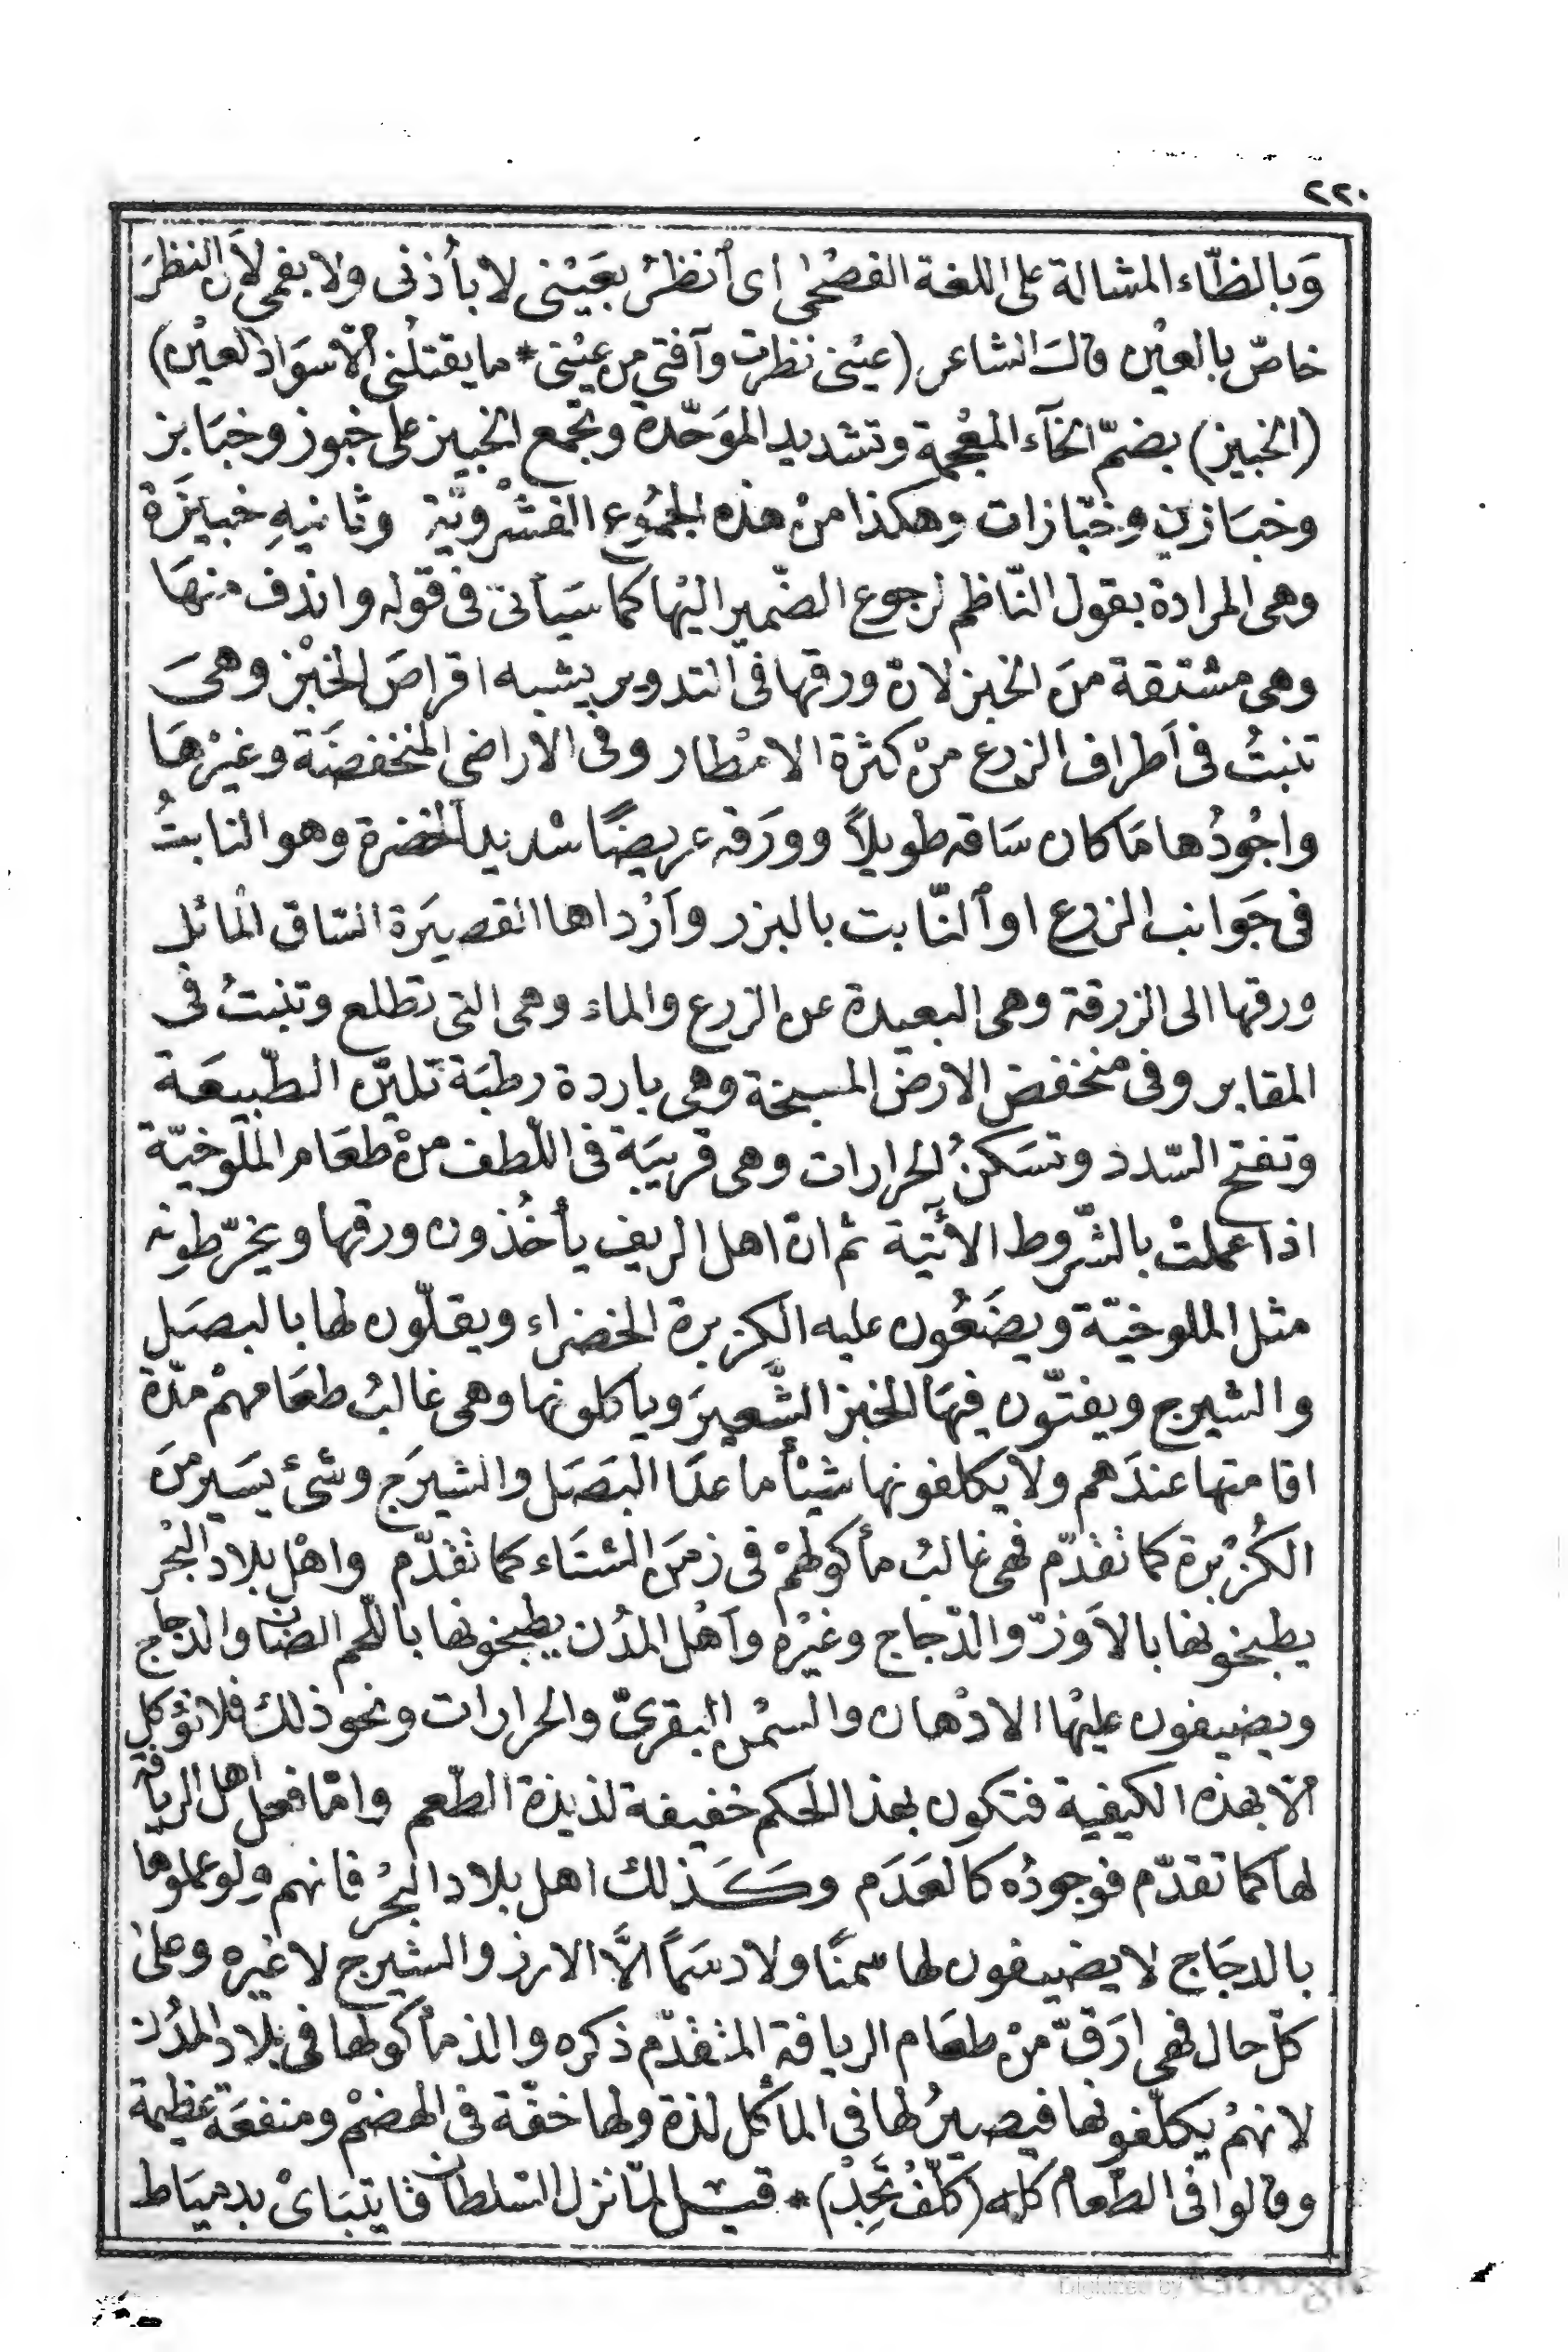 ٢٢٠
وَبالظّاء المشالة على اللغة الفصْحى اى أنظرُ بعَيْنى لا بأذنى ولا بفمى لأن النظرَ
خاصّ بالعيْن قالَ الشاعر (عيْنى نظرت وآفتى من عيْنى * ما يقتلنى الّا سوَاد العيْن)
(الخبيز) بضمّ الخآء المعْجمة وتشديد الموَحّدة ويجْمع الخبيز على خبوز وخبَابز
وخبَازين وخبّازات وهكذا منْ هذه الجمُوع الفشْرويّة وثانيهِ خبيزَة
وهى المرادة بقول النّاظم لرجوع الضّمير اليْها كما سَيأتى فى قوله واندف منهَا
وهى مشتقة منَ الخبز لانّ ورقها فى التدوير يشبه اقراصَ الخبْز وهىَ
تنبتُ فى اَطراف الزرع منْ كثرة الامْطار وفى الاراضى المنخفضَة وغيْرهَا
واجْودُها مَا كان سَاقه طويلاً وورَقه عريضًا شديد الخضرة وهو النابتُ
فى جَوانب الزرع او النّابت بالبزر وأرْداها القصيَرة السّاق المائل
ورقها الى الزرقة وهى البعيدة عن الزرع والماء وهى التى تطلع وتنبتُ فى
المقابر وفى منخفض الارض المسبخة وهى باردة رطبَة تليّن الطّبيعَة
وتفتح السّدد وتسَكنُ الحرارات وهى قريبَة فى اللّطف منْ طعَام الملوخيّة
اذا عملتْ بالشّروط الأتية ثم انّ اهل الريف يأخُذون ورقها ويخرّطونه
مثل الملوخيّة ويضَعُون عليه الكزبرة الخضراء ويقلّون لها بالبصَل
والشيرج ويفتّون فيهَا الخبز الشّعيرَ وياكلونها وهى غالبُ طعَامهمْ مدّة
اقامتها عندَهم ولا يكلفونها شيْأ ما عدَا البَصَل والشيرَج وشئ يسَير منَ
الكُزبْرة كما تقدّم فهى غالبُ مأكولهمْ فى زمَن الشتَاء كما تقدّم واهْل بلاد البْحر
يطبخونها بالاَوزّ والدّجاج وغيْره وأهْل المدُن يطبخونها باللّحم الضّان والدّجاج
ويضيفون عليْها الادْهان والسمْن البقرىّ والحرارات ونحو ذلك فلا تؤكل
الّا بهذه الكيفية فتكون بهذا الحكم خفيفة لذيذة الطّعم وامّا فعل اهل الريافة
لها كما تقدّم فوجودُه كالعَدَم وكَذلك اهل بلاد البحْر فانهم ولو عملوها
بالدجَاج لا يضيفون لها سمنًا ولا دسَمًا الاَّ الارز والشيرج لا غيره وعلى
كلّ حال فهى ارَقّ منْ طعَام الريافة المتقدّم ذكره والذ مأكولها فى بلاد المدُن
لانهمْ يكلّفونها فيصيرُ لها فى المأكل لذة ولها خفّة فى الهضمْ ومنفعَة عظيمة
وقالوا فى الطّعام كله (كلّفْ تَجِدْ) * قيل لمّا نزل السّلطان قايتبَاىْ بدميَاط
Digitized by Google